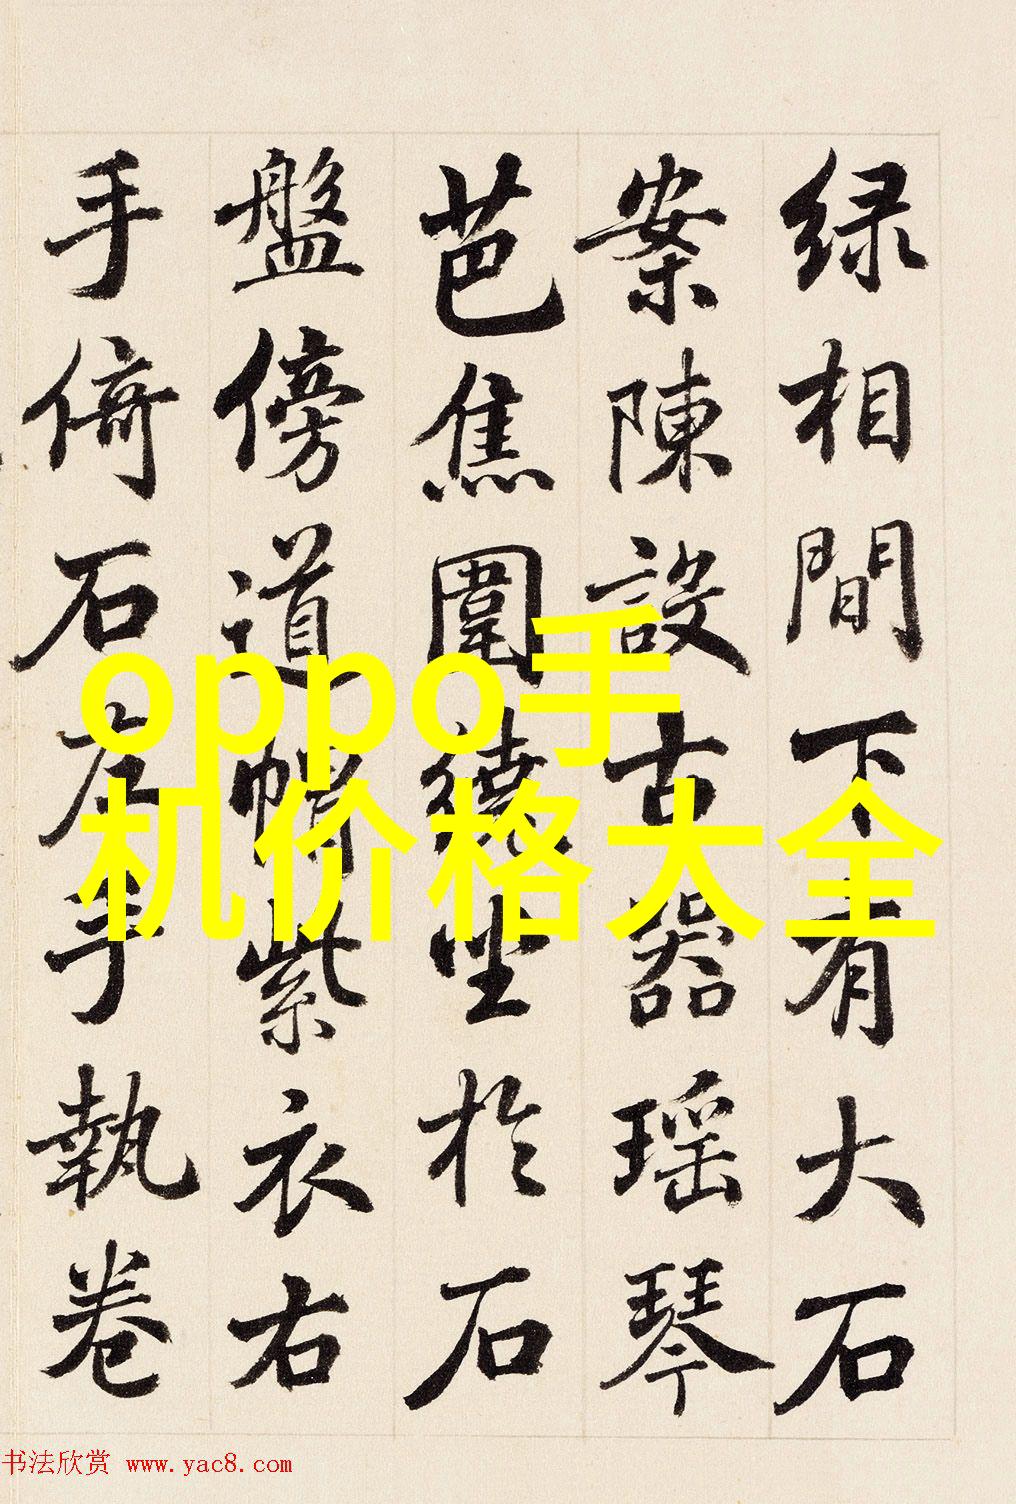 绿相間下有大石
案陳設古器瑶琴
芭焦圍繞坐於石
盤傍道帽紫衣右
手倚石左手執卷
oppo手
机价格大全
书法欣赏 www.yac8.com